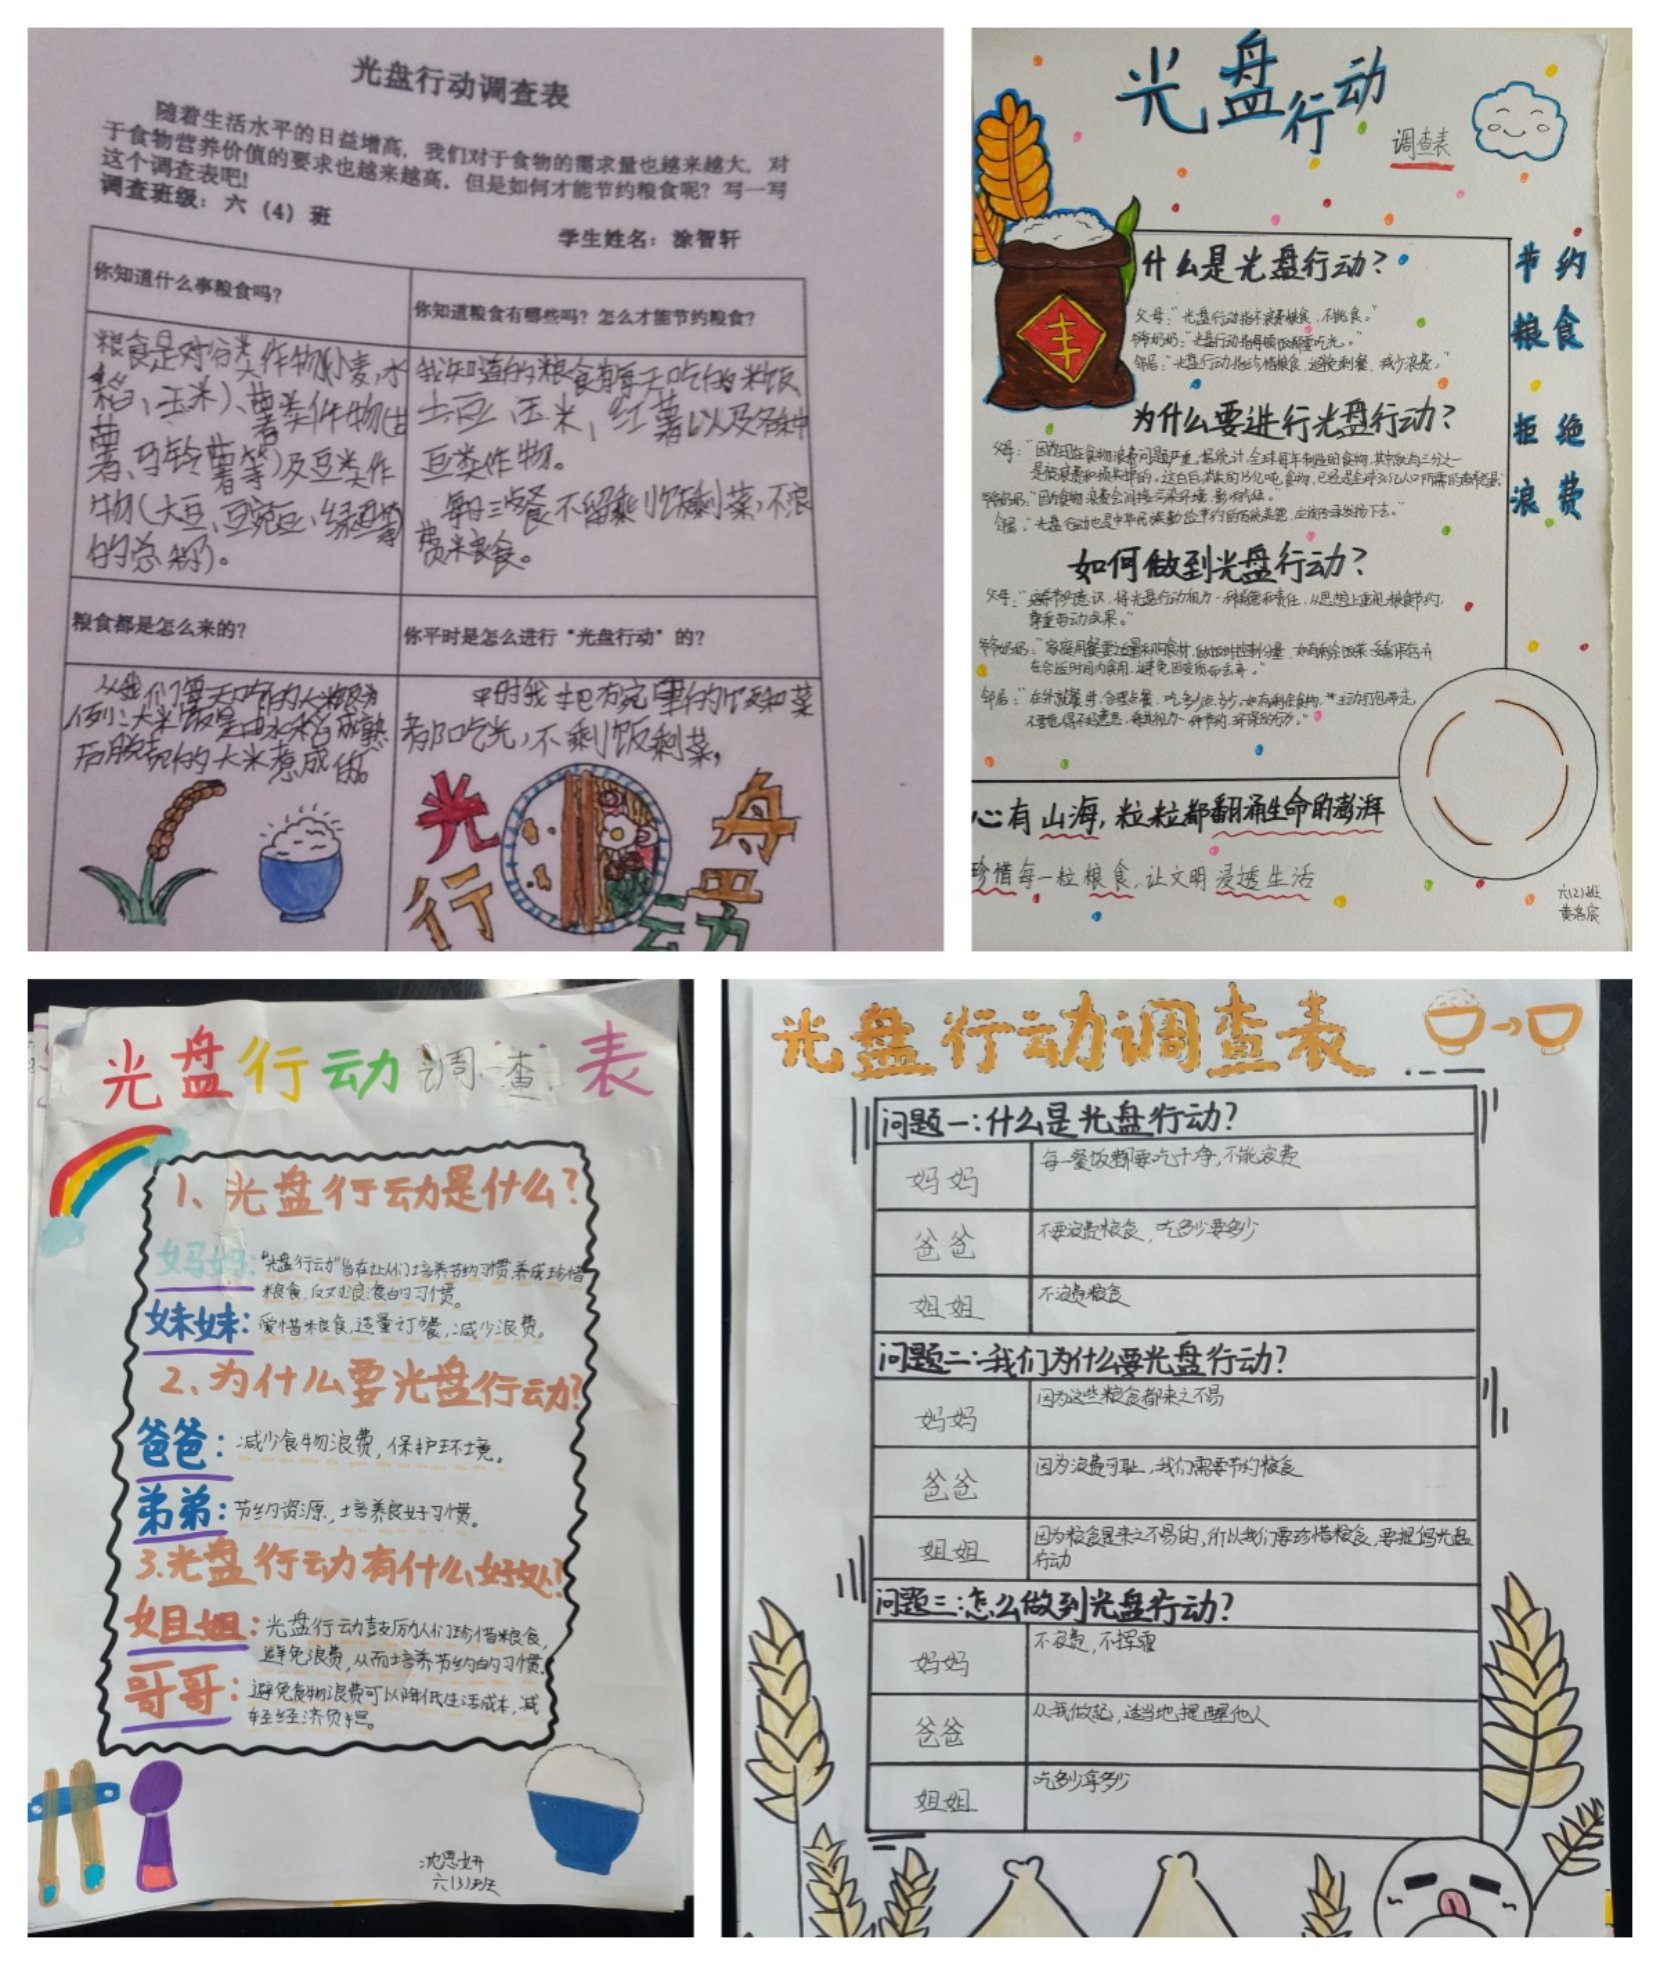 光盘行动调查表
随着生活水平的日益增高，我们对于食物的需求量也越来越大，对
于食物营养价值的要求也越来越高，但是如何才能节约粮食呢？写一写
这个调查表吧！
调查班级：六（4）班
学生姓名：涂智轩
你知道什么事粮食吗？
你知道粮食有哪些吗？怎么才能节约粮食？
粮食是对谷类作物(小麦，水
稻、玉米)、薯类作物(甘
薯、马铃薯等)及豆类作
物(大豆、豌豆、绿豆等
的总称)。
我知道的粮食有每天吃的米饭
土豆、玉米，红薯以及各种
豆类作物。
每日三餐不留剩饭剩菜，不浪
费粮食。
粮食都是怎么来的？
你平时是怎么进行“光盘行动”的？
以我们每天吃的大米饭为
例：大米饭是由水稻成熟
后脱壳的大米煮成的。
平时我把碗里的饭和菜
都吃光，不剩饭剩菜，
光盘
行动
光盘行动
调查表
什么是光盘行动？
父母：“光盘行动指不浪费粮食，不挑食。”
爷爷奶奶：“光盘行动指每顿饭都要吃光。”
邻居：“光盘行动指珍惜粮食，避免剩餐，减少浪费。”
为什么要进行光盘行动？
父母：“因为现在食物浪费问题严重。据统计，全球每年制造的食物，其中就有三分之一
爷爷奶奶：“因为食物浪费会间接污染环境，影响
邻居：“光盘行动也是中华民族勤俭节约的传统美德，应该传承发扬下去。”
如何做到光盘行动？
父母：“培养节约意识，将光盘行动视为一种美德和责任，从思想上重视粮食节约，
尊重劳动成果。”
爷爷奶奶：“家庭用餐要适量采购食材，做饭时控制分量，如有剩余饭菜妥善保存并
在合适时间内食用，避免因变质而丢弃。”
邻居：“在外就餐时，合理点餐，吃多少点多少，如有剩余食物，主动打包带走，
不要觉得不好意思，将其视为一种节约、环保的行为。”
节约
粮食
拒绝
浪费
心有山海，粒粒都翻涌生命的澎湃
珍惜每一粒粮食，让文明浸透生活
六(2)班
黄洛宸
光盘行动调查表
1、光盘行动是什么？
妈妈：“光盘行动”旨在让人们培养节约习惯，养成珍惜
粮食、反对浪费的习惯。
妹妹：爱惜粮食，适量订餐，减少浪费。
2、为什么要光盘行动？
爸爸：减少食物浪费，保护环境。
弟弟：节约资源，培养良好习惯。
3.光盘行动有什么好处？
姐姐：光盘行动鼓励人们珍惜粮食，
避免浪费，从而培养节约的习惯。
哥哥：避免食物浪费可以降低生活成本，减
轻经济负担。
沈思妍
六(3)班
光盘行动调查表
问题一：什么是光盘行动？
妈妈 每一餐饭都要吃干净，不能浪费
爸爸 不要浪费粮食，吃多少要多少
姐姐 不浪费粮食
问题二：我们为什么要光盘行动？
妈妈 因为这些粮食都来之不易
爸爸 因为浪费可耻，我们需要节约粮食
姐姐 因为粮食是来之不易的，所以我们要珍惜粮食，要提倡光盘
行动
问题三：怎么做到光盘行动？
妈妈 不浪费，不挥霍
爸爸 从我做起，适当地提醒他人
姐姐 吃多少拿多少